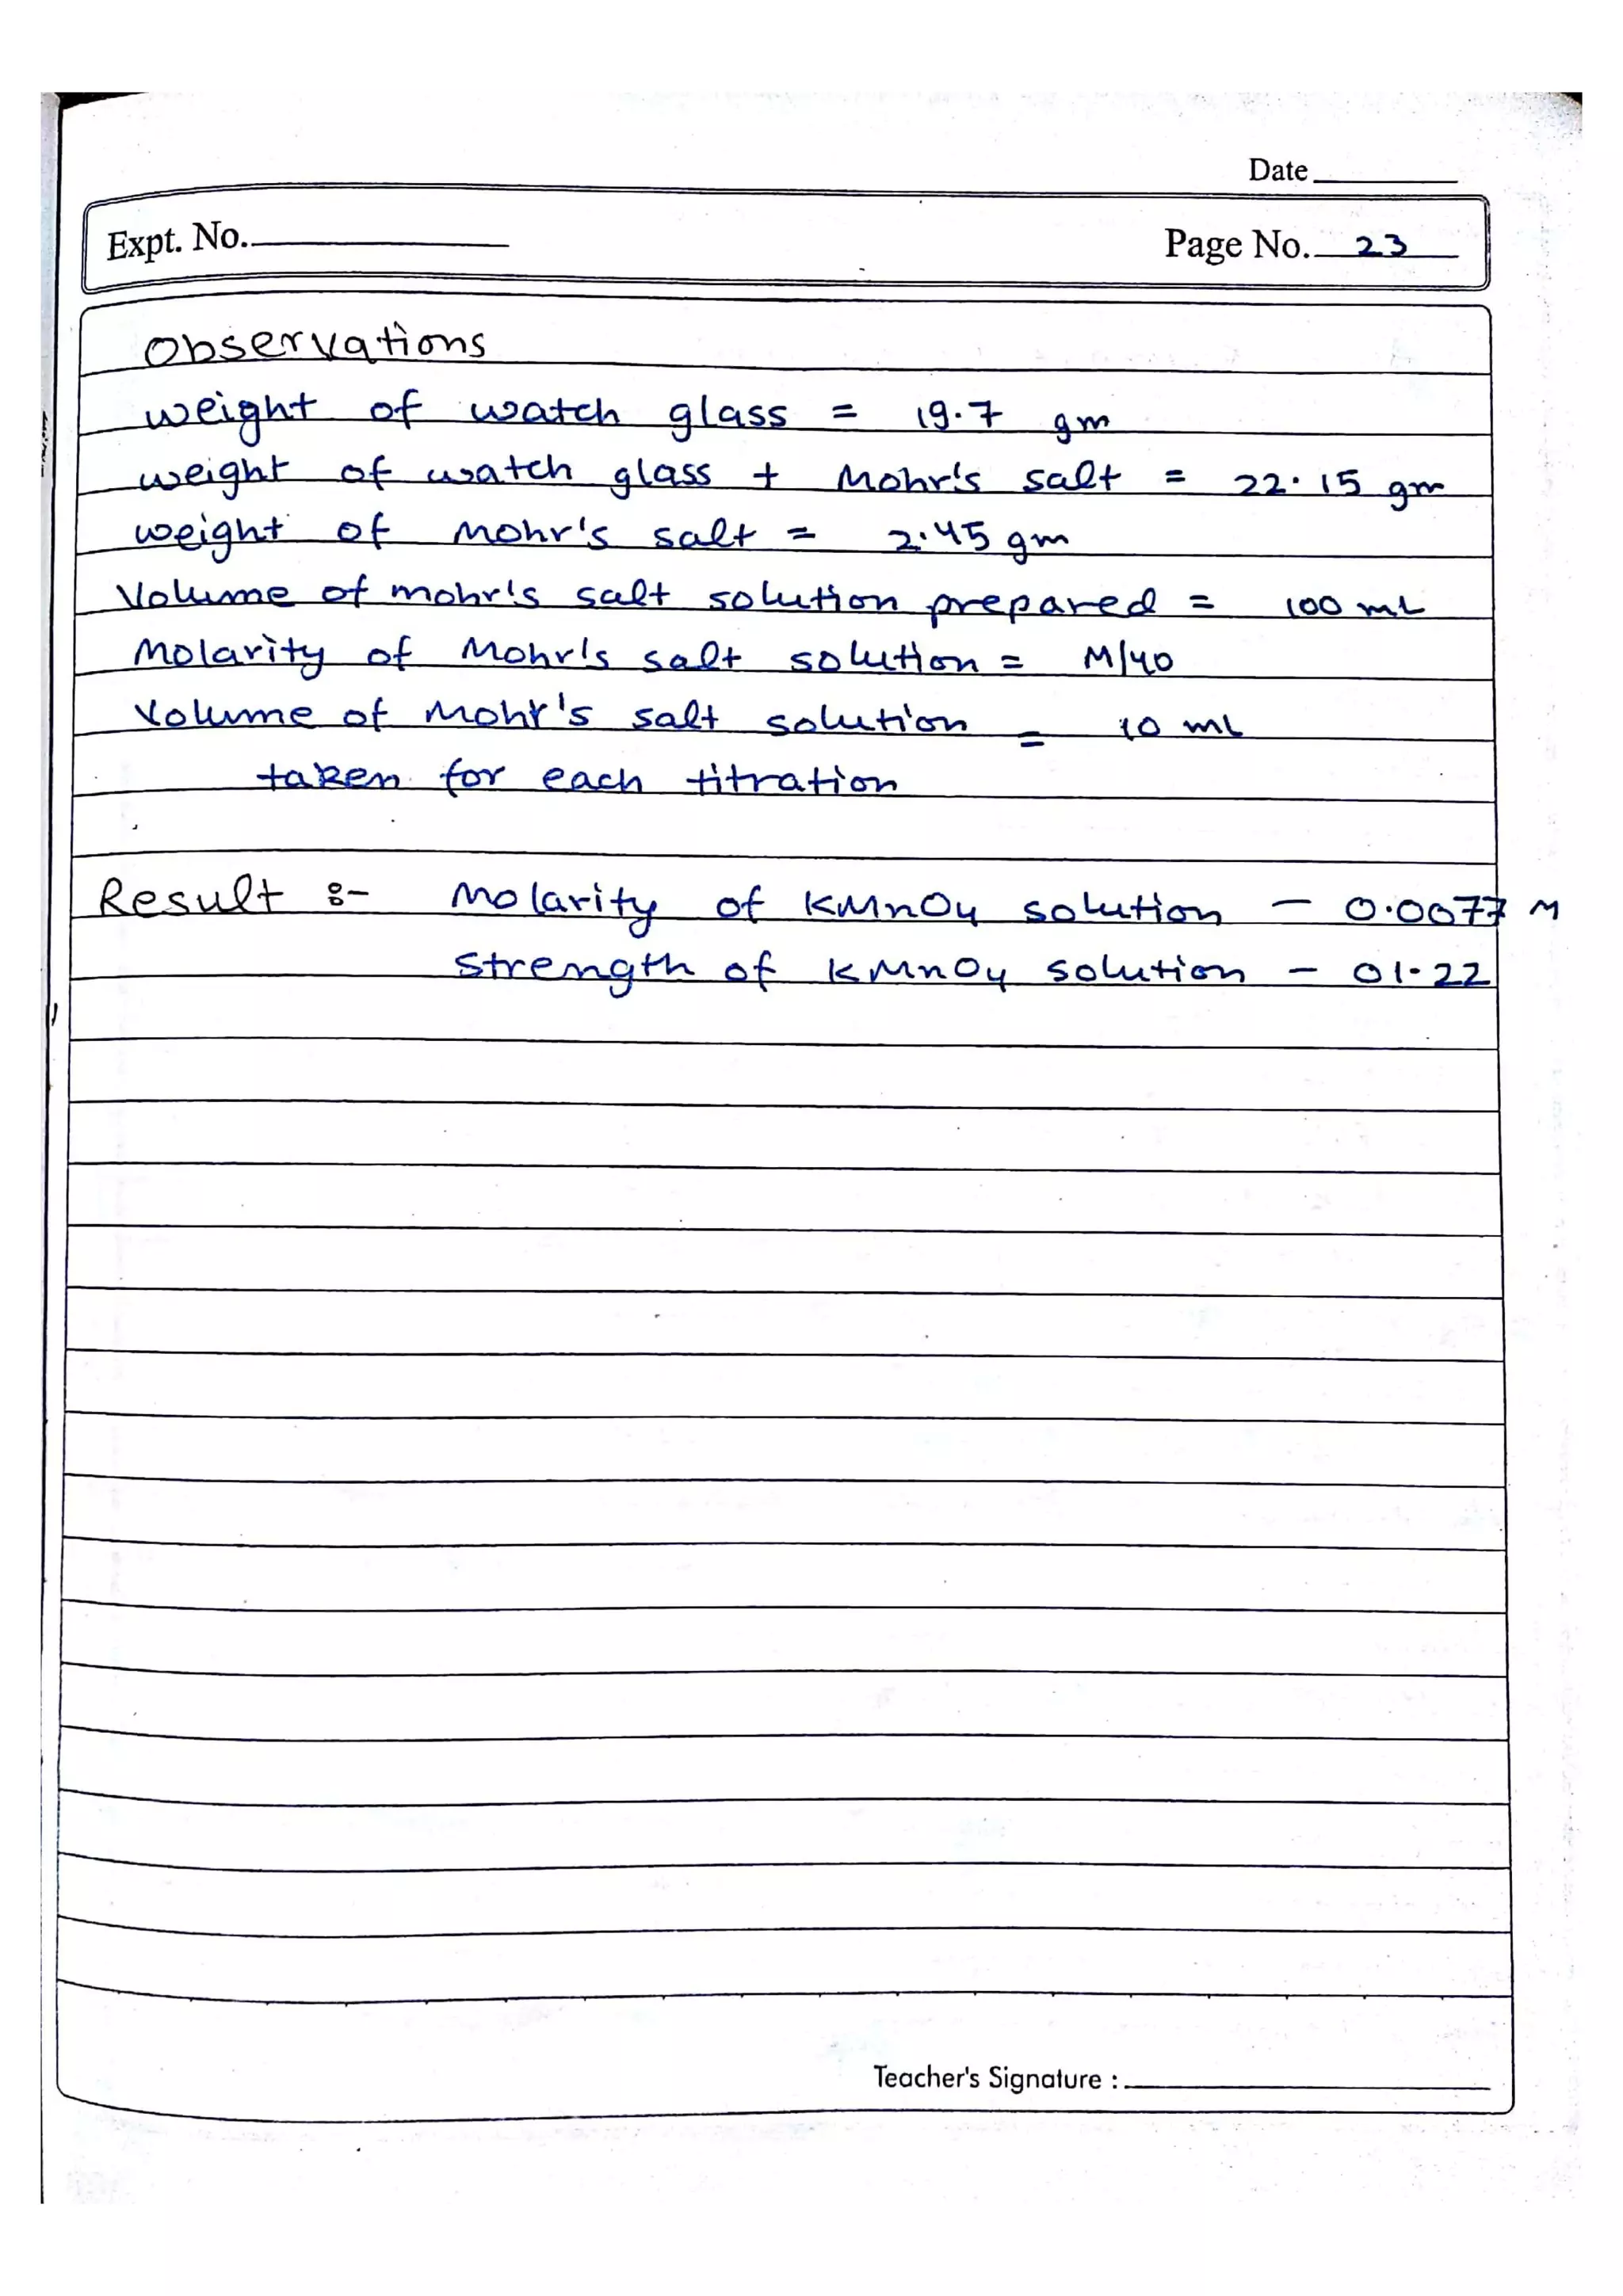 Date
Expt. No.
Page No. 23
Observations
weight of watch glass = 19.7 gm
weight of watch glass + Mohr's salt = 22.15 gm
weight of Mohr's salt = 2.45 gm
Volume of mohr's salt solution prepared = 100 mL
Molarity of Mohr's salt solution = M/40
Volume of Mohr's salt solution = 10 mL
taken for each titration
Result :- Molarity of KMnO4 solution - 0.0077 M
Strength of KMnO4 solution - 01.22
Teacher's Signature :